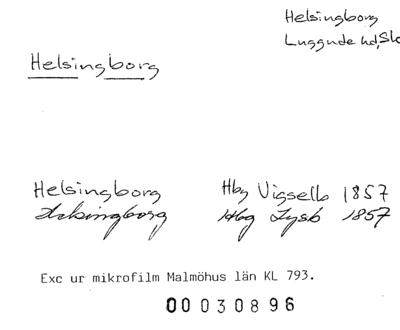 Helsingborg
Luggude hd, Sk
Helsingborg
Helsingborg Hbg Vigselb 1857
Helsingborg Hbg Lysb 1857
Exc ur mikrofilm Malmöhus län KL 793.
00030896